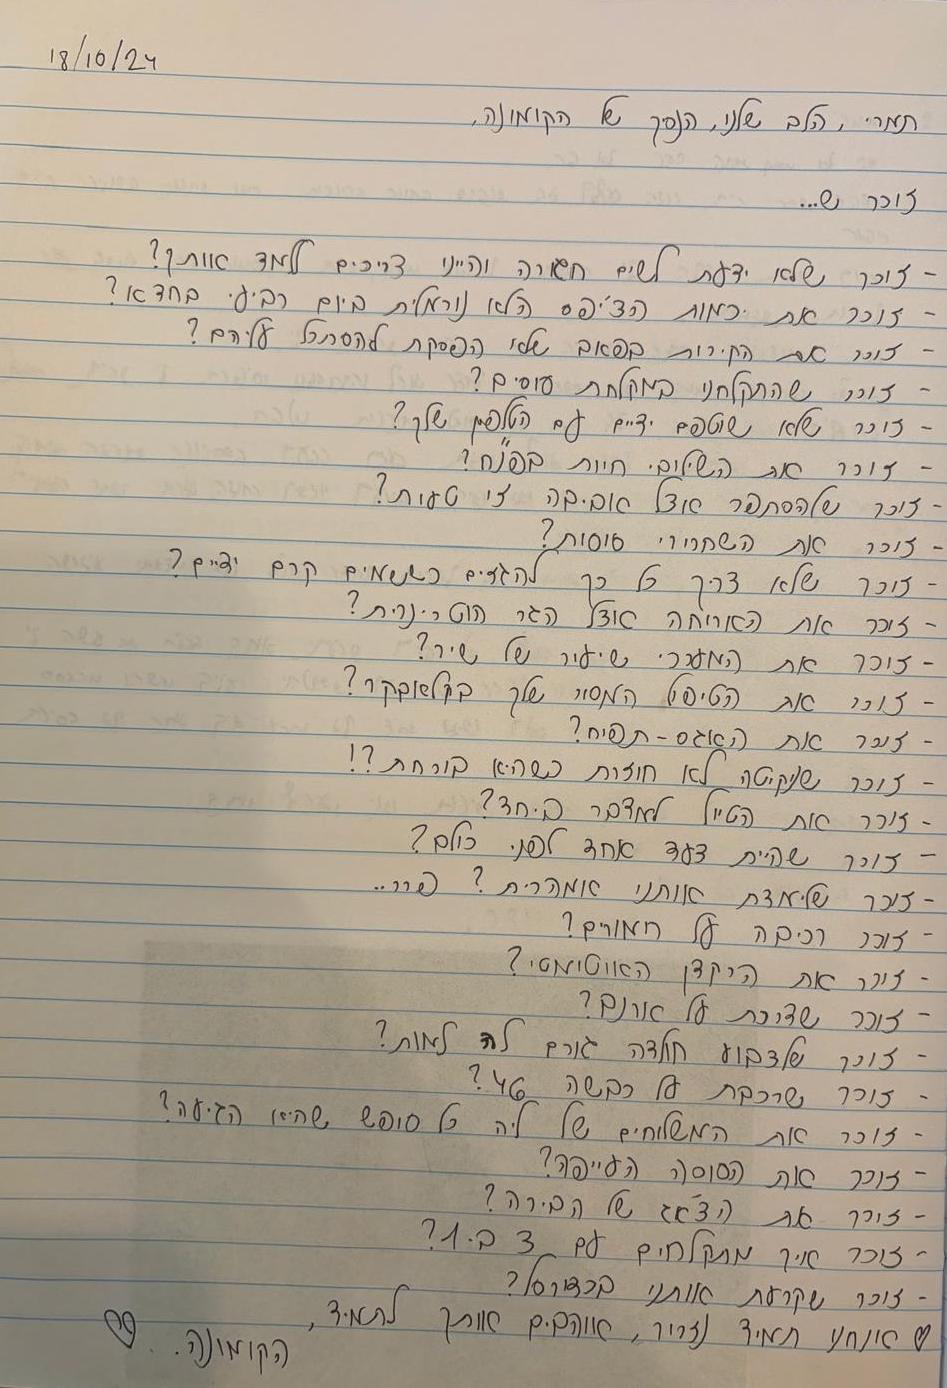 18/10/24
תמרי, הלב שלנו, הנסיך של הקומונה,
זוכר ש...
- זוכר שלא ידעת לשים חגורה והיינו צריכים ללמד אותך?
- זוכר את כמות הצ'יפס הלא נורמלית ביום רביעי בחדא?
- זוכר את הקירות בפאב שלא הפסקת להסתכל עליהם?
- זוכר שהתקלחנו במקלחת עוסים?
- זוכר שלא שוטפים ידיים עם הטלפון שלך?
- זוכר את השילובי חיות בפינ"ח?
- זוכר שלהסתפר אצל אביבה זו טעות?
- זוכר את השחרורי סוסות?
- זוכר שלא צריך כל כך להגזים כששמים קרם ידיים?
- זוכר את הארוחה אצל הגר הוטרינרית?
- זוכר את המערכי שיעור של שיר?
- זוכר את הטיפול המסור שלך בקלאובקר?
- זוכר את האגס-תפוח?
- זוכר שניקיטה לא חוזרת כשהיא בורחת?!
- זוכר את הטיול למדבר ביחד?
- זוכר שהיית צעד אחד לפני כולם?
- זוכר שלימדת אותנו אמהרית? פרר..
- זוכר רכיבה על חמורים?
- זוכר את הריקדן האווטימטי?
- זוכר שדרכת על אורנים?
- זוכר שלצבוע חולדה גורם לה למות?
- זוכר שרכבת על כבשה 46?
- זוכר את המשלוחים של ליה כל סופש שהיא הגיעה?
- זוכר את הסוסה העייפה?
- זוכר את הצ'אג של הבירה?
- זוכר איך מתקלחים עם 3 ב-1?
- זוכר שקרעת אותנו בכדורסל?
♡ אנחנו תמיד נזכור, אוהבים אותך לתמיד,
הקומונה. ♡